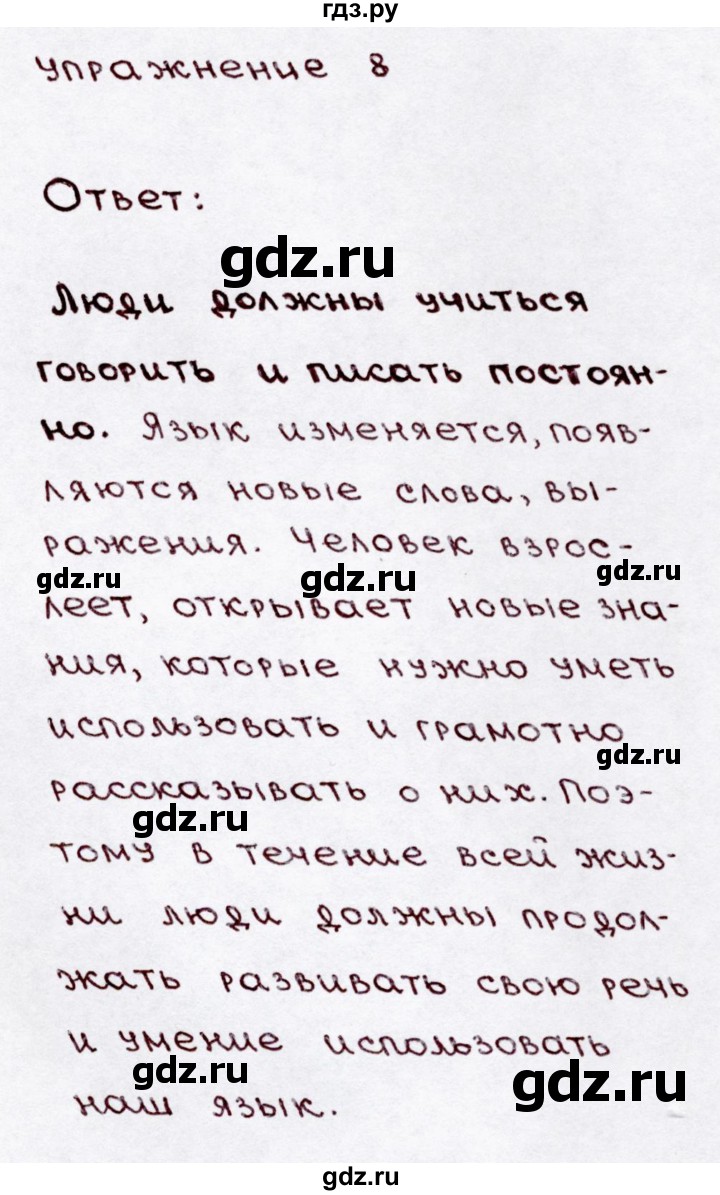 гдз.ру
упражнение 8
Ответ:
gdz.ru
Люди должны учиться
говорить и писать постоян-
но. Язык изменяется, появ-
ляются новые слова, вы-
ражения. Человек взрос-
gdz.ru gdz.ru gdz.ru
леет, открывает новые зна-
ния, которые нужно уметь
использовать и грамотно
gdz.ru
рассказывать о них. Поэ-
gdz.ru
тому в течение всей жиз-
ни люди должны продол-
жать развивать свою речь
и умение использовать
gdz.ru gdz.ru
наш язык.
gdz.ru